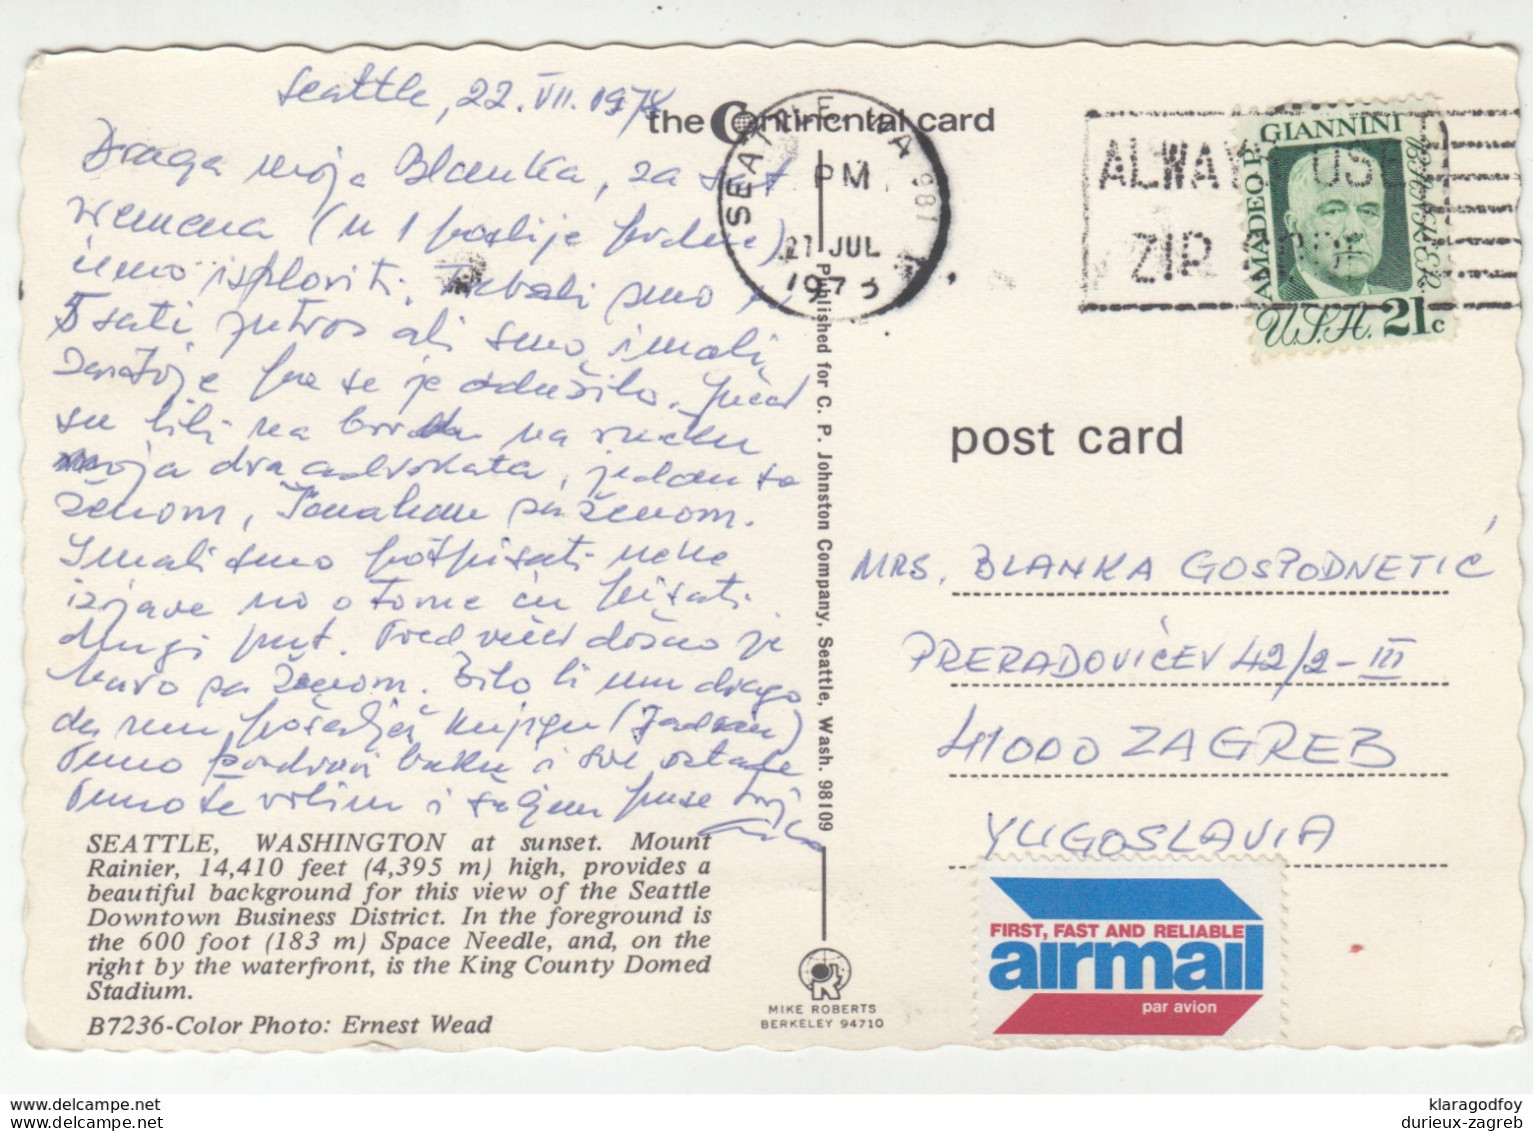 Seattle, 22. VII. 1978
Draga moja Blanka, za sat
vremena (u 1 poslije podne)
ćemo isploviti. Trebali smo u
5 sati jutros ali smo imali
pa se je odužilo. Jučer
su bili na brodu na ručku
moja dva advokata, jedan sa
ženom, kapetan sa ženom.
Imali smo potpisati neke
izjave no o tome ću pisati
drugi put. Pred večer došao je
Mavo sa ženom. Bilo bi mu drago
da mu pošalješ knjigu (Jadran)
Puno pozdravi baku i sve ostale
Puno te volim i šaljem puse tvoj
the Continental card
SEATTLE, WA 981
PM
27 JUL
1978
ALWAYS USE
ZIP CODE
AMADEO P. GIANNINI
BANKER
U.S.A. 21c
post card
MRS. BLANKA GOSPODNETIĆ
PRERADOVIĆEV 42/2-III
41000 ZAGREB
YUGOSLAVIA
Published for C. P. Johnston Company, Seattle, Wash. 98109
SEATTLE, WASHINGTON at sunset. Mount
Rainier, 14,410 feet (4,395 m) high, provides a
beautiful background for this view of the Seattle
Downtown Business District. In the foreground is
the 600 foot (183 m) Space Needle, and, on the
right by the waterfront, is the King County Domed
Stadium.
B7236-Color Photo: Ernest Wead
MIKE ROBERTS
BERKELEY 94710
FIRST, FAST AND RELIABLE
airmail
par avion
klaragodfoy
delcampe.net
durieux-zagreb
delcampe.net